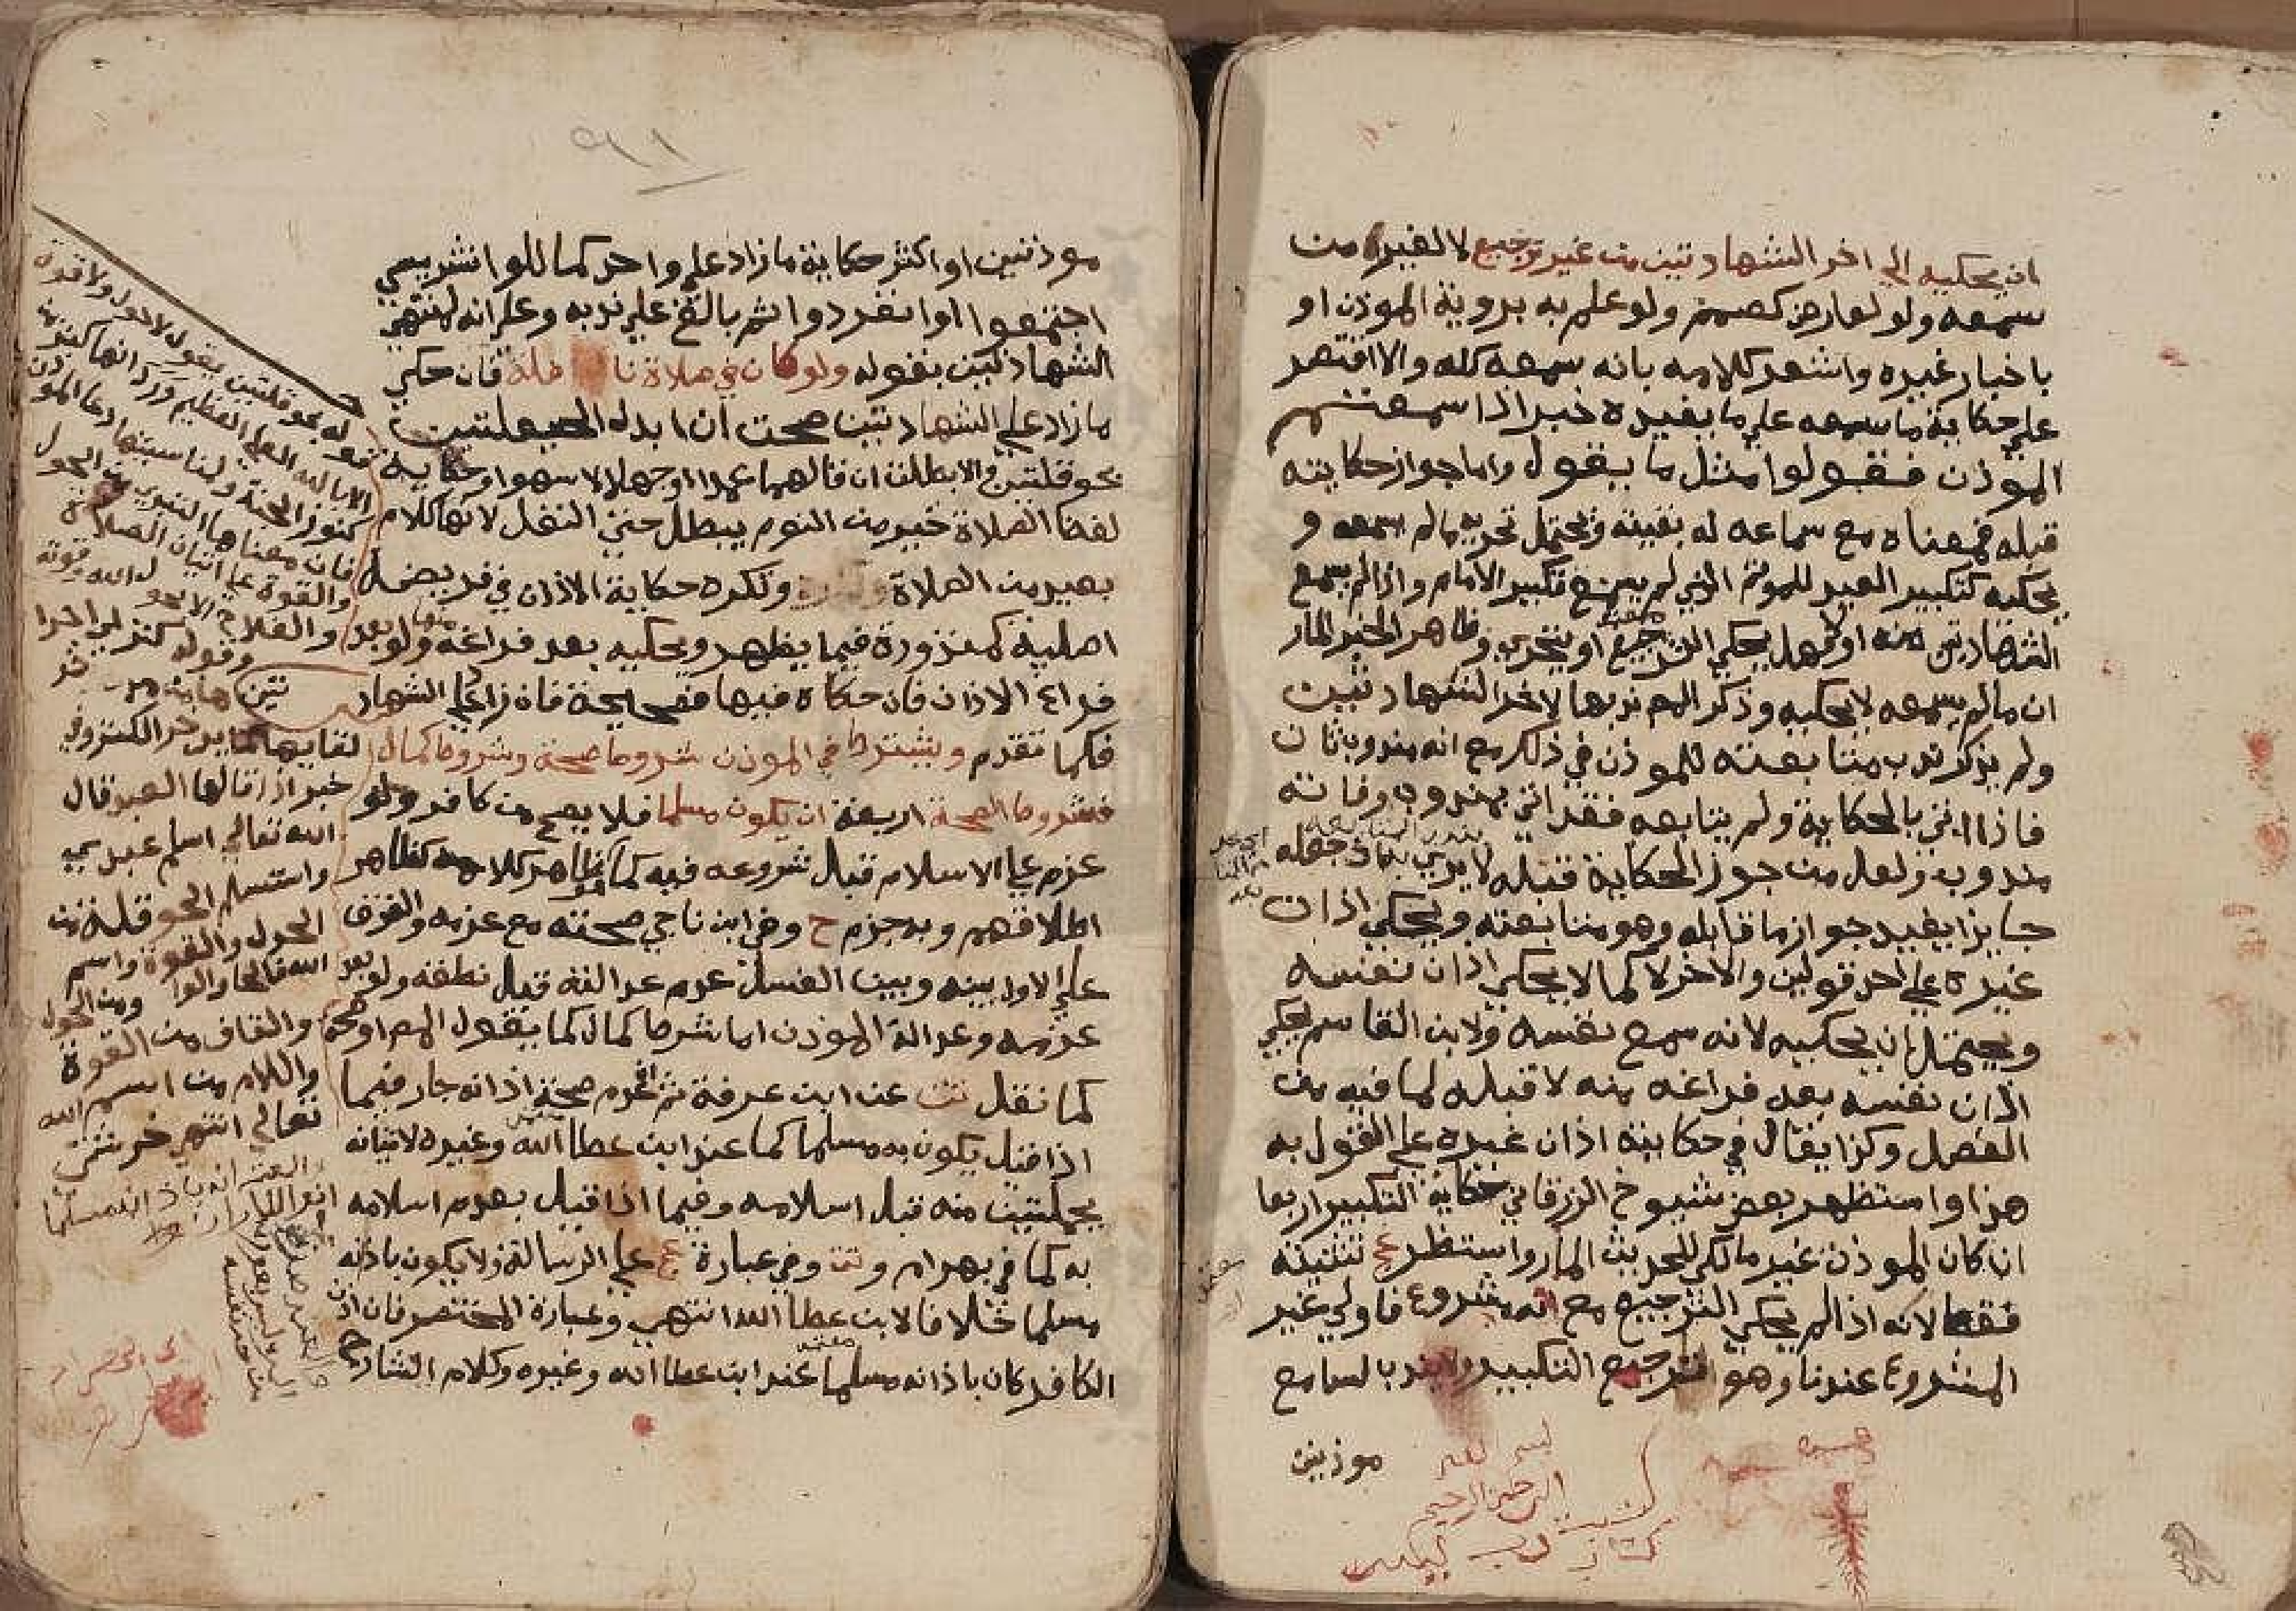 ان يحكيه الي اخر الشهادتين من غير ترجيع لا لغيره من
سمعه ولو لعارض كصمم ولو علم به بروية الموذن او
باخبار غيره واشعر كلامه بانه سمعه كله والا اقتصر
علي حكاية ما سمعه علي ما يفيده خبر اذا سمعتم
الموذن فقولوا مثل ما يقول واما جواز حكايته
قبله فمعناه مع سماعه له بقيته ويحتمل تحريه ما لم يسمعه و
يحكيه كتكبير العيد للموتم الذي لم يسمع تكبير الامام واذا لم يسمع
الشهادتين منه او لا فهل يحكي الترجيع او يتحري وظاهر الخبر المار
ان ما لم يسمعه لا يحكيه وذكر المص ندبها لاخر الشهادتين
ولم يذكر ندب متابعته للموذن في ذلك مع انه مندوب ثان
فاذا اتي بالحكاية ولم يتابعه فقد اتي بمندوب وفاته
مندوب ولعل من جوز الحكاية قبله لا يري بندب المتابعة جعله
جايزا يفيد جواز ما قابله وهو متابعته ويحكي اذان
غيره علي احد قولين والاخر لا كما لا يحكي اذان نفسه
ويحتمل ان يحكيه لانه سمع نفسه ولابن القاسم يحكي
اذان نفسه بعد فراغه منه لا قبله لما فيه من
الفصل وكذا يقال في حكايته اذان غيره علي القول به
هذا واستظهر بعض شيوخ الزرقاني حكاية التكبير اربعا
ان كان الموذن غير مالكي للحديث المار واستظهر عج تثنيته
فقط لانه اذا لم يحكي الترجيع مع انه مشروع فاولي غير
المشروع عندنا وهو الترجيع التكبير ولا يندب لسامع
موذنين
بسم الله
الرحمن الرحيم
٩١
موذنين او اكثر حكاية ما زاد علي واحد كما للوانشريسي
اجتمعوا او انفردوا ثم بالغ علي ندبه وعلي انه لمنتهي
الشهادتين بقوله ولو كان في صلاة نافلة فان حكي
ما زاد علي الشهادتين صحت ان ابدل الحيعلتين
بحوقلتين والا بطلت ان قالهما عمدا او جهلا لا سهوا وحكاية
لفظ الصلاة خير من النوم يبطل حتي النفل لانها كلام
بعيد من الصلاة وتكره حكاية الاذان في فريضة
اصلية كمنذورة فيما يظهر ويحكيه بعد فراغه منها ولو بعد
فراغ الاذان فان حكاه فيها فصحيحة فان زاد علي الشهادتين
فكما تقدم ويشترط في الموذن شروط صحة وشروط كمال
فشروط الصحة اربعة ان يكون مسلما فلا يصح من كافر ولو
عزم علي الاسلام قبل شروعه فيه كما هو ظاهر كلامه كظاهر
اطلاقهم وبه جزم ح وفي ابن ناجي صحته مع عزمه والفرق
علي الاول بينه وبين الغسل عدم عدالته قبل نطقه ولو بعد
عزمه وعدالة الموذن اما شرط كمال كما يقول المص او صحة
كما نقل تت عن ابن عرفة ثم عدم صحة اذانه جار فيما
اذا قيل يكون به مسلما كما عند ابن عطا الله وغيره لاتيانه
بجملتين منه قبل اسلامه وفيما اذا قيل بعدم اسلامه
به كما في بهرام وتت وفي عبارة عج علي الرسالة ولا يكون باذانه
مسلما خلافا لابن عطا الله انتهي وعبارة المختصر فان اذن
الكافر كان باذانه مسلما عند ابن عطا الله وغيره وكلام الشارح
قوله بحوقلتين بقوله لا حول ولا قوة
الا بالله العلي العظيم وورد انها كنز من
كنوز الجنة ولمناسبتها دعا الموذن
فان معناها التبري من الحول
والقوة علي اتيان الصلاة
والفلاح الا بحول الله وقوته
وقوله كنز اي اجرا
لقايلها كما يدخر الكنز وفي
خبر اذا قالها العبد قال
الله تعالي اسلم عبدي
واستسلم الحوقلة من
الحول والقوة واسم
الله فالحا والواو من الحول
والقاف من القوة
واللام من اسم الله
تعالي انتهي خرشي